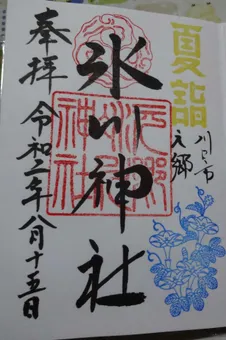 夏詣
川口市
元郷
氷川神社
元郷
氷川
神社
奉拝
令和二年八月十五日